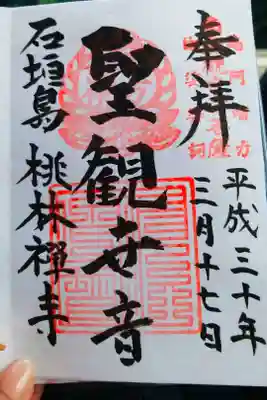 奉拝
平成三十年
三月十七日
聖観世音
石垣島
桃林禅寺